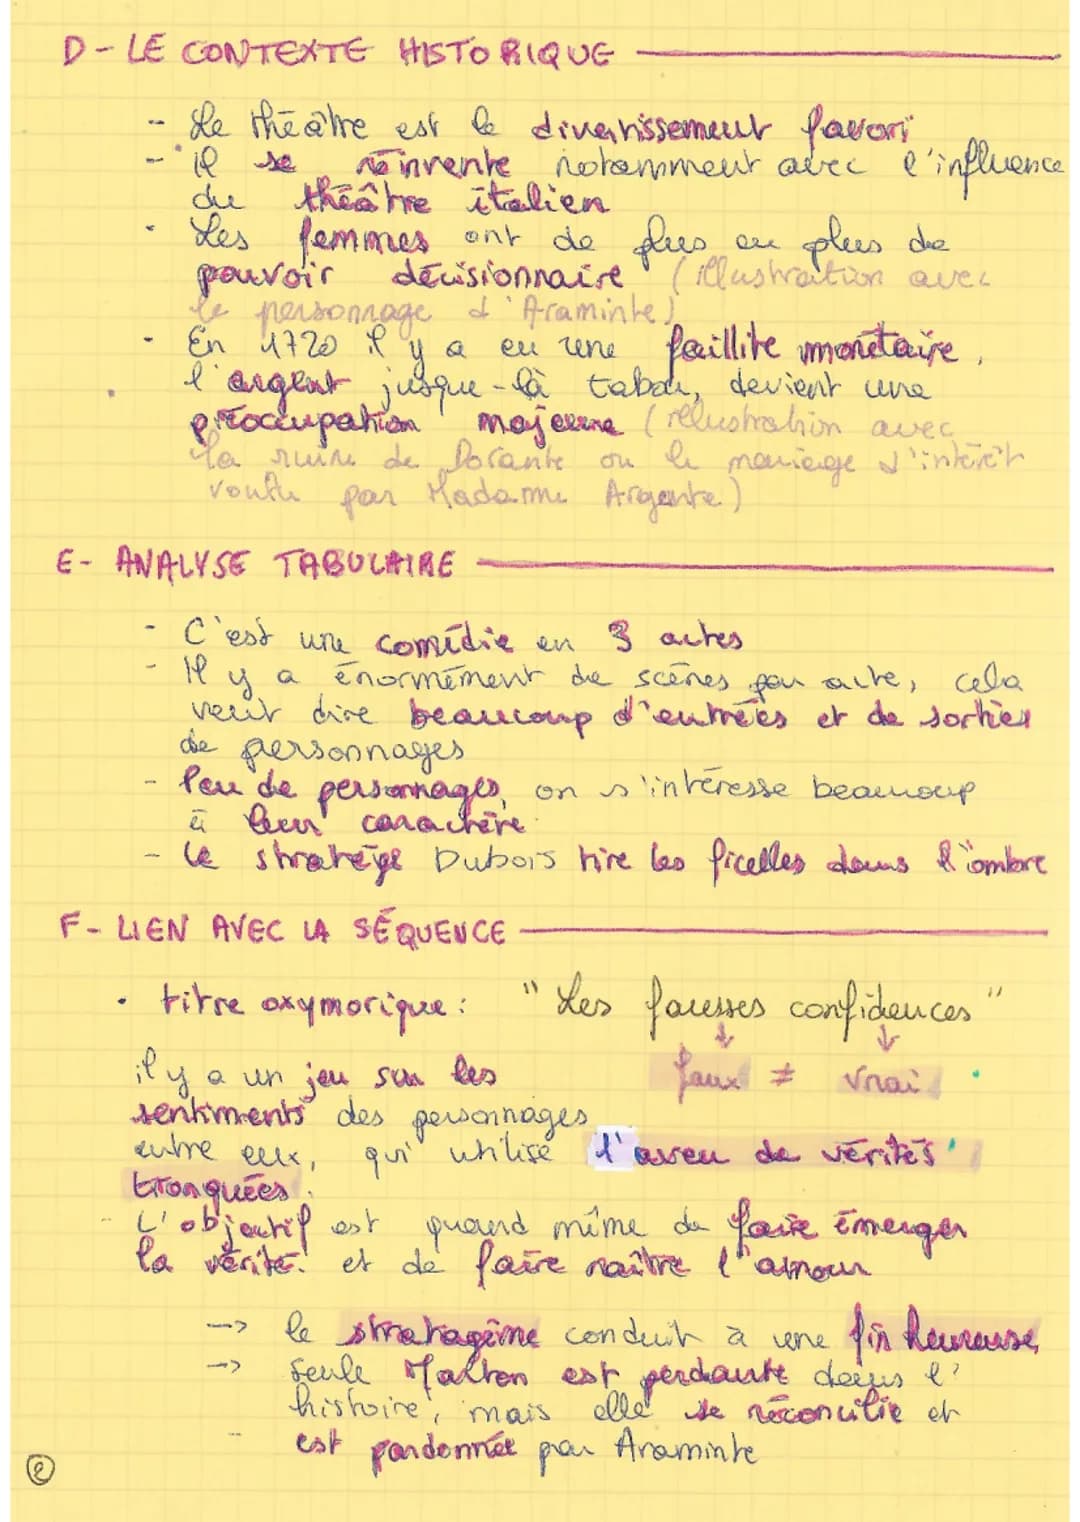 D - LE CONTEXTE HISTORIQUE
- Le théâtre est le divertissement favori
- Il se réinvente notamment avec l'influence
du théâtre italien
- Les femmes ont de plus en plus de
pouvoir décisionnaire (illustration avec
le personnage d'Araminte)
- En 1720 il y a eu une faillite monétaire,
l'argent jusque-là tabou, devient une
préoccupation majeure (illustration avec
la ruine de Dorante ou le mariage d'intérêt
voulu par Madame Argante)
E - ANALYSE TABULAIRE
- C'est une comédie en 3 actes
- Il y a énormément de scènes par acte, cela
veut dire beaucoup d'entrées et de sorties
de personnages
- Peu de personnages, on s'intéresse beaucoup
à leur caractère
- Le stratège Dubois tire les ficelles dans l'ombre
F - LIEN AVEC LA SÉQUENCE
• titre oxymorique : "Les fausses confidences"
↓ ↓
faux ≠ vrai
il y a un jeu sur les
sentiments des personnages
entre eux, qui utilise l'aveu de vérités
tronquées.
- L'objectif est quand même de faire émerger
la vérité et de faire naître l'amour
--> le stratagème conduit à une fin heureuse,
--> seule Marton est perdante dans l'
histoire, mais elle se réconcilie et
est pardonnée par Araminte
2